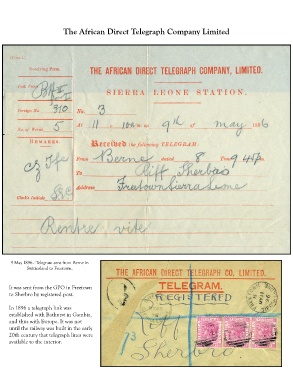 The African Direct Telegraph Company Limited
THE AFRICAN DIRECT TELEGRAPH COMPANY, LIMITED.
SIERRA LEONE STATION.
No. 3
5
At 11 10 am 9th of May 1896
REMARKS.
Received the following TELEGRAM.
From Berne dated 8
To Cliff Sherbro
Address Freetown Sierra Leone
Clerk's Initials
Rentre vite
9 May 1896. Telegram sent from Berne in
Switzerland to Freetown.
It was sent from the GPO in Freetown
to Sherbro by registered post.
In 1896 a telegraph link was
established with Bathurst in Gambia,
and thus with Europe. It was not
until the railway was built in the early
20th century that telegraph lines were
available to the interior.
THE AFRICAN DIRECT TELEGRAPH CO. LIMITED.
TELEGRAM.
REGISTERED
Cliff
Sherbro